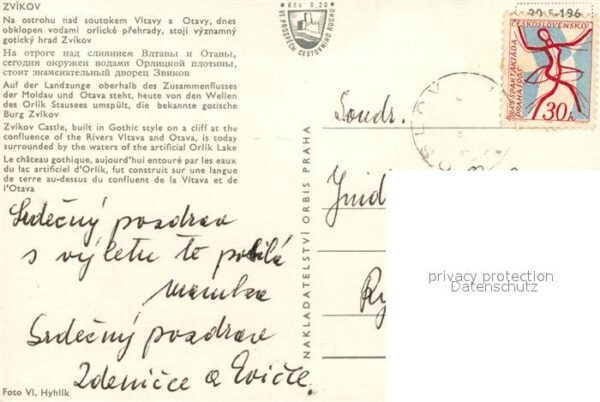 ZVÍKOV
Na ostrohu nad soutokem Vltavy a Otavy, dnes
obklopen vodami orlické přehrady, stojí významný
gotický hrad Zvíkov
На отроге над слиянием Влтавы и Отавы,
сегодня окружен водами Орлицкой плотины,
стоит знаменательный дворец Звиков
Auf der Landzunge oberhalb des Zusammenflusses
der Moldau und Otava steht, heute von den Wellen
des Orlík Stausees umspült, die bekannte gotische
Burg Zvíkov
Zvíkov Castle, built in Gothic style on a cliff at the
confluence of the Rivers Vltava and Otava, is today
surrounded by the waters of the artificial Orlík Lake
Le château gothique, aujourd'hui entouré par les eaux
du lac artificiel d'Orlík, fut construit sur une langue
de terre au-dessus du confluent de la Vltava et de
l'Otava
Srdečný pozdrav
s výletu te posílá
mamka
Srdečný pozdrav
Zdeničce a Evičce.
Foto Vl. Hyhlík
Kčs 0,20
VE PROSPĚCH CESTOVNÍHO RUCHU
NAKLADATELSTVÍ ORBIS PRAHA
20.5.196
ČESKOSLOVENSKO
SPARTAKIÁDA
PRAHA 1965
30
Soudr.
privacy protection
Datenschutz